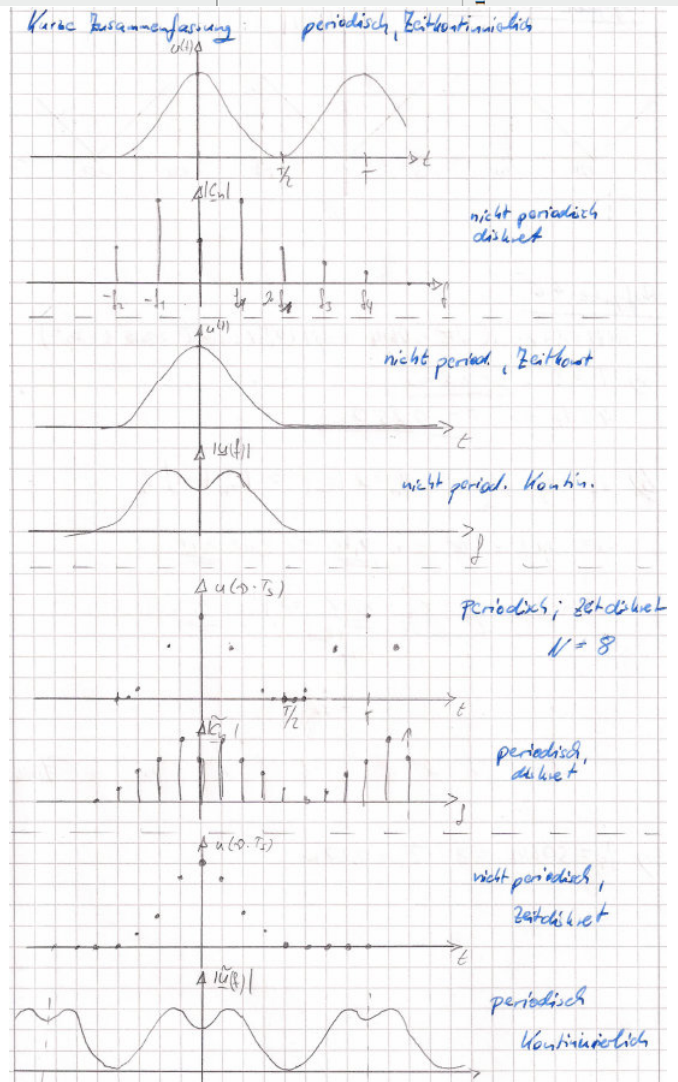 Kurze Zusammenfassung: periodisch, Zeitkontinuierlich
u(t)
t
T/2 T
|C_n|
nicht periodisch
diskret
-f2 -f1 f1 f3 f4 f
u(t)
nicht period., Zeitkont
t
|U(f)|
nicht period. Kontin.
f
u(ν·Ts)
Periodisch; Zeitdiskret
N = 8
T/2 T t
|C̃_n|
periodisch,
diskret
f
u(ν·Ts)
nicht periodisch,
Zeitdiskret
t
|Ũ(f)|
periodisch
Kontinuierlich